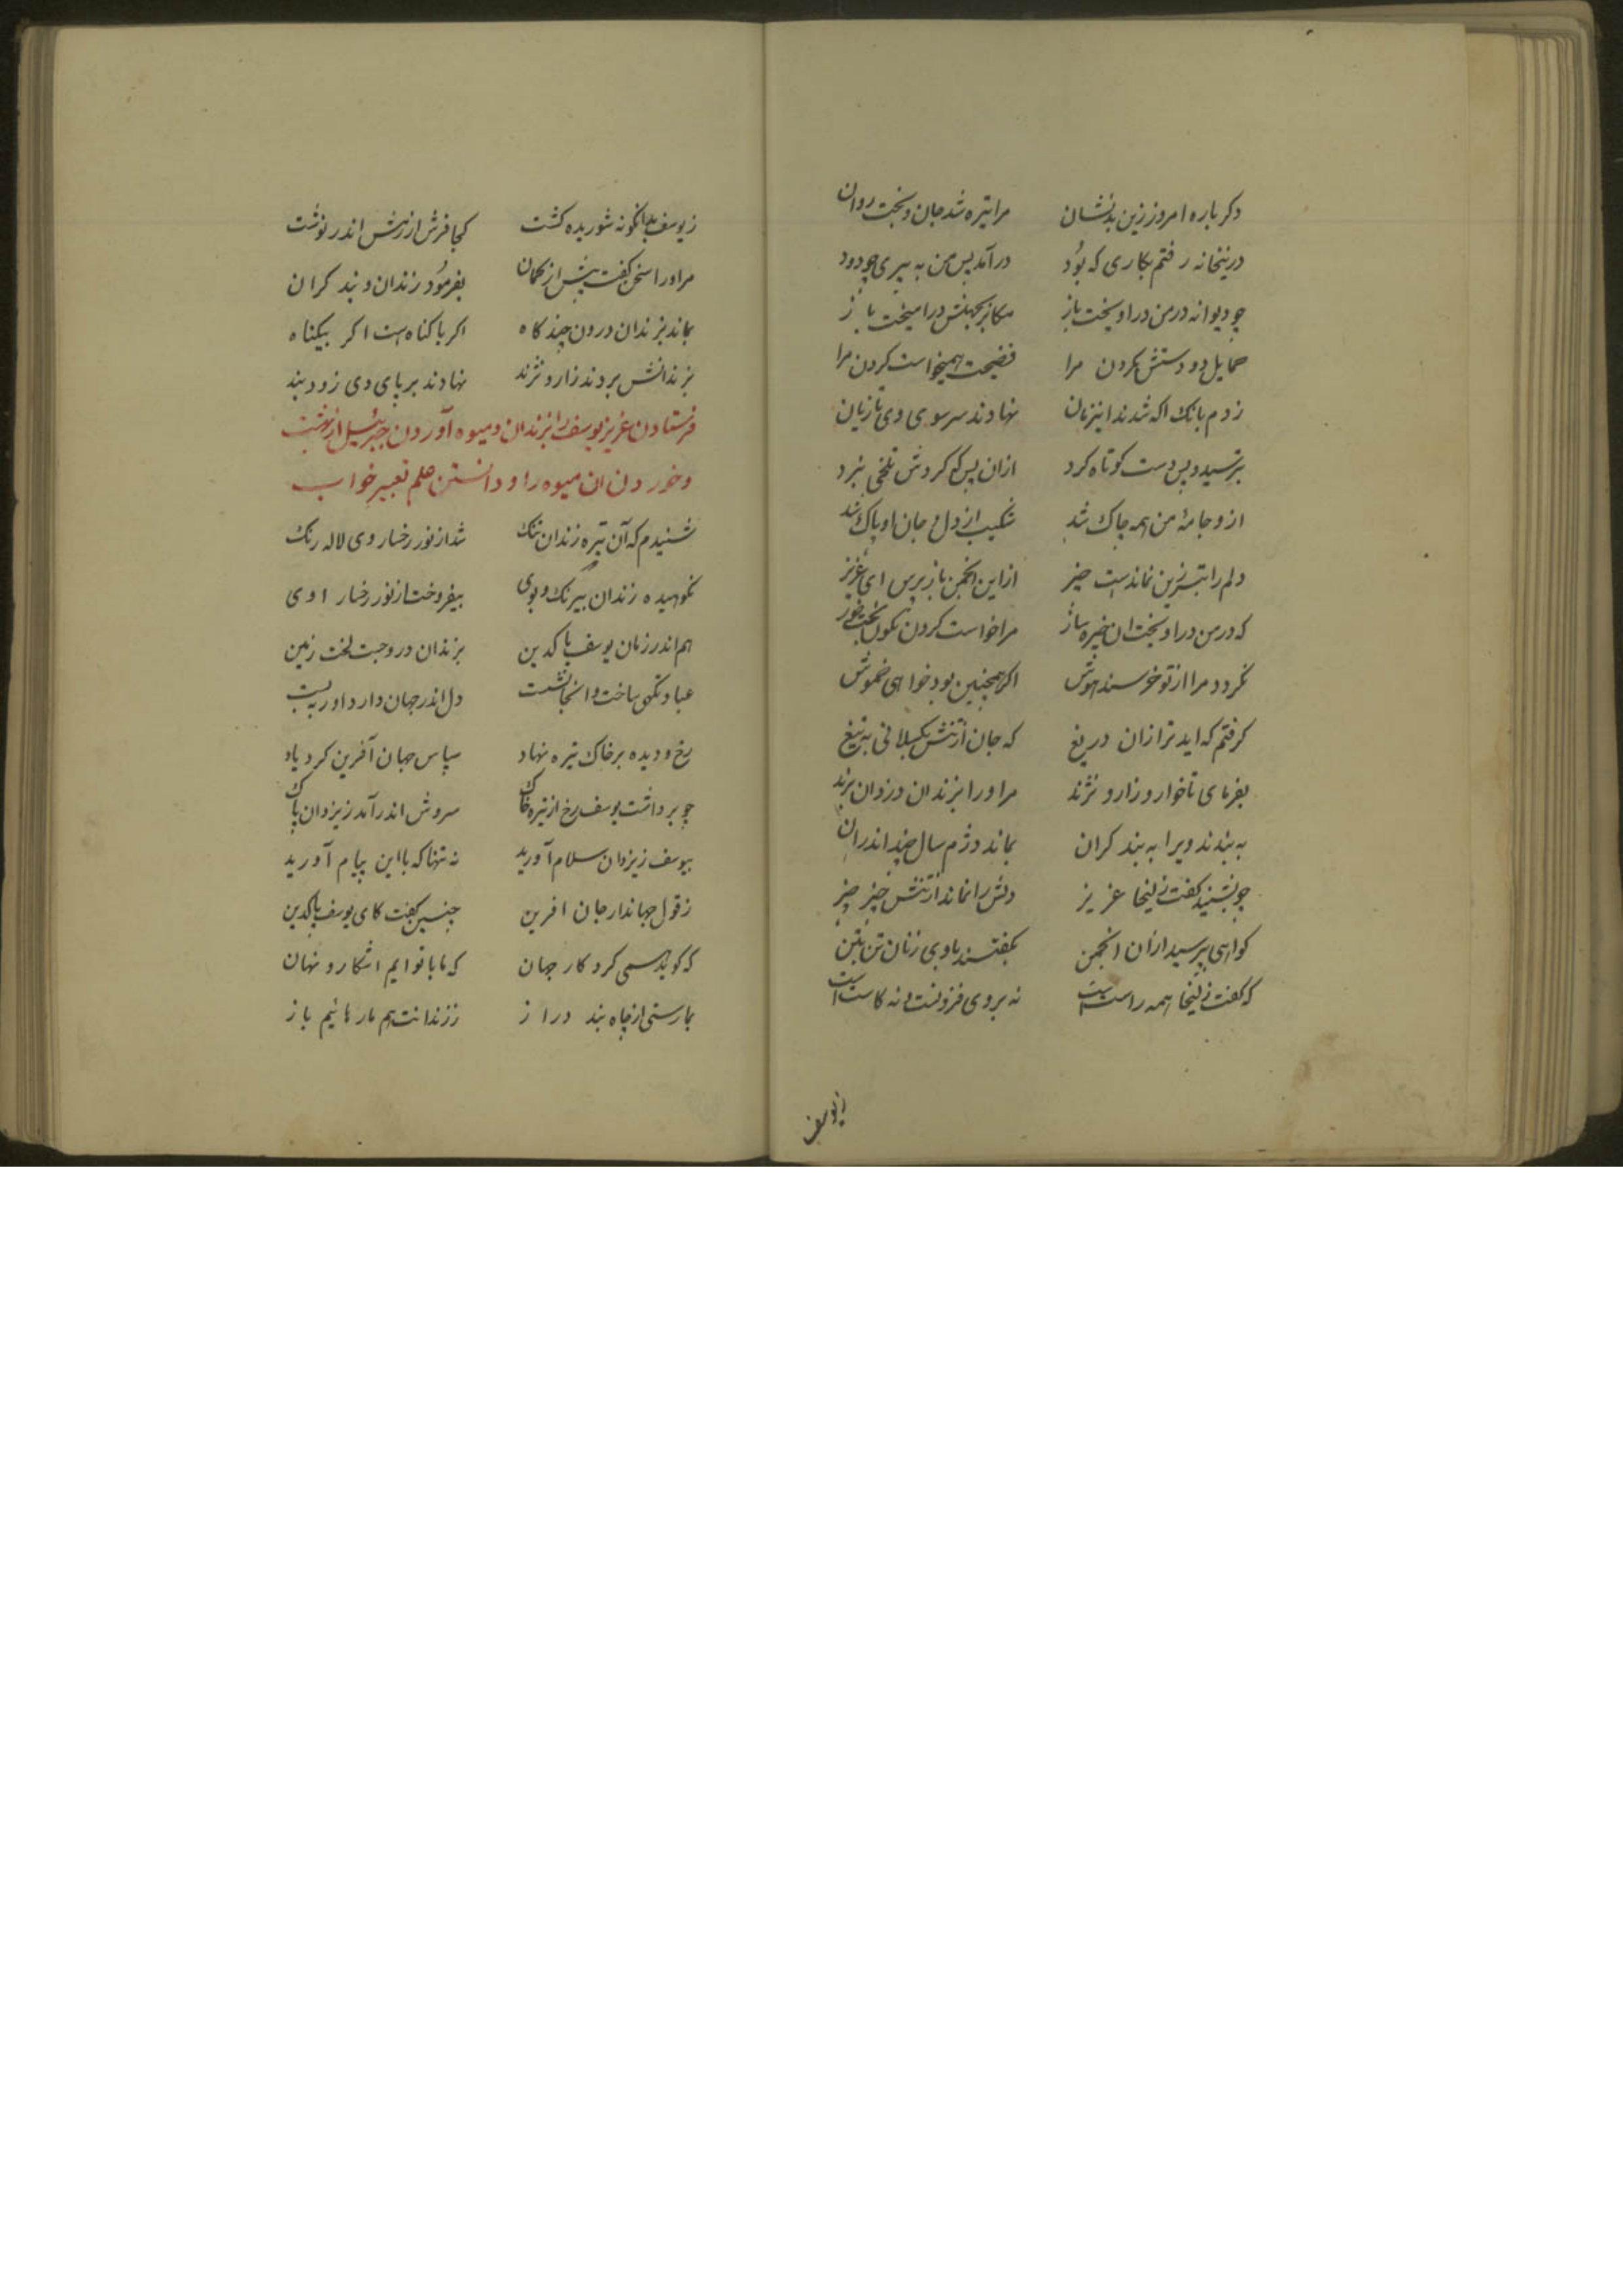 دکر باره امروز زین بدنشان مرا تیره شد جان و بخت روان
درینخانه رفتم بکاری که بود درآمد پس من به سیری چو دود
چو دیوانه در من درآویخت باز بجهلش درآمیخت باز
حمایل دو دستش بکردن مرا فضیحت همیخواست کردن مرا
زدم بانک اکه شدند انیزمان نهادند سر سوی وی تازیان
بترسید و پس دست کوتاه کرد ازان پس که کردش تلخی ببرد
ازو جامهٔ من همه چاک شد شکیب از دل و جان او پاک شد
دلم را بتر زین نماندست چیز ازاین انجمن باز پرس ای عزیز
که در من درآویخت ان خیره ساز مرا خواست کردن
نکردد مرا از تو خرسند هوش اکر همچنین بود خواهی خموش
کرفتم که اید ترا زان دریغ که جان از تنش بکسلانی به تیغ
بفرمای تا خوار و زار و نژند مر او را بزندان دزدان برند
به بندند ویرا به بند کران بماند دژم سال چند اندران
چو بشنید کفت زلیخا عزیز دلش را نماند از تنش چیز چیز
کواهی بپرسید ازان انجمن بکفتند با وی زنان تن بتن
که کفت زلیخا همه راست است نه بر وی فزونست و نه کاست است
زیوسف
زیوسف بدانکونه شوریده کشت کجا فرش ارزش اندر نوشت
مر او را سخن کفت پیش از کمان بفرمود زندان و بند کران
بماند بزندان درون چند کاه اکر با کناه است اکر بیکناه
بزندانش بردند زار و نژند نهادند بر پای وی زود بند
فرستادن عزیز یوسف را بزندان و میوه آوردن جبرئیل از بهشت
و خوردن ان میوه را و دانستن علم تعبیر خواب
شنیدم که آن تیره زندان تنک شد از نور رخسار وی لاله رنک
نکوهیده زندان بیرنک و بوی بیفروخت از نور رخسار اوی
هم اندر زمان یوسف پاکدین بزندان درو جست لخت زمین
عبادتکهی ساخت و انجا نشست دل اندر جهاندار داور ببست
رخ و دیده بر خاک تیره نهاد سپاس جهان آفرین کرد یاد
چو برداشت یوسف رخ از تیره خاک سروش اندر آمد زیزدان پاک
بیوسف زیزدان سلام آورید نه تنها که با این پیام آورید
زقول جهاندار جان افرین چنین کفت کای یوسف پاکدین
که کوید همی کردکار جهان که ما با توایم اشکار و نهان
بمارستی از چاه بند دراز ز زندانت هم ما رهانیم باز